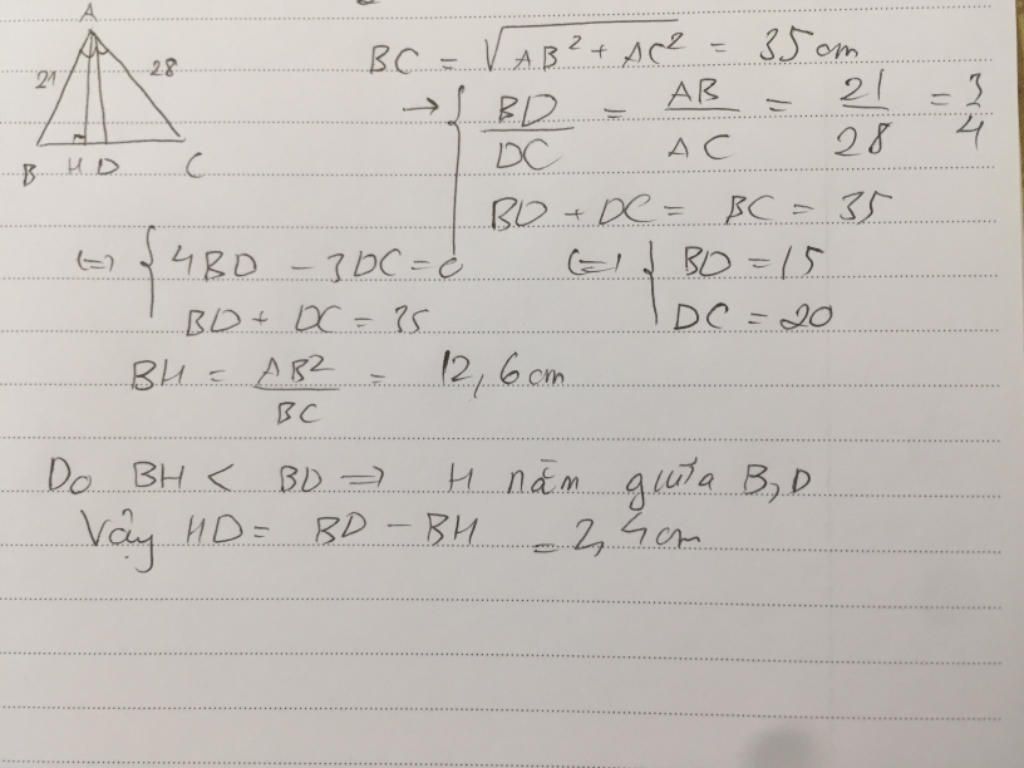 A
21 28
B H D C
BC = √(AB² + AC²) = 35cm
→ { BD/DC = AB/AC = 21/28 = 3/4
BD + DC = BC = 35
(=) { 4BD - 3DC = 0 (=) { BD = 15
BD + DC = 35 DC = 20
BH = AB²/BC = 12,6cm
Do BH < BD => H nằm giữa B, D
Vậy HD = BD - BH = 2,4cm